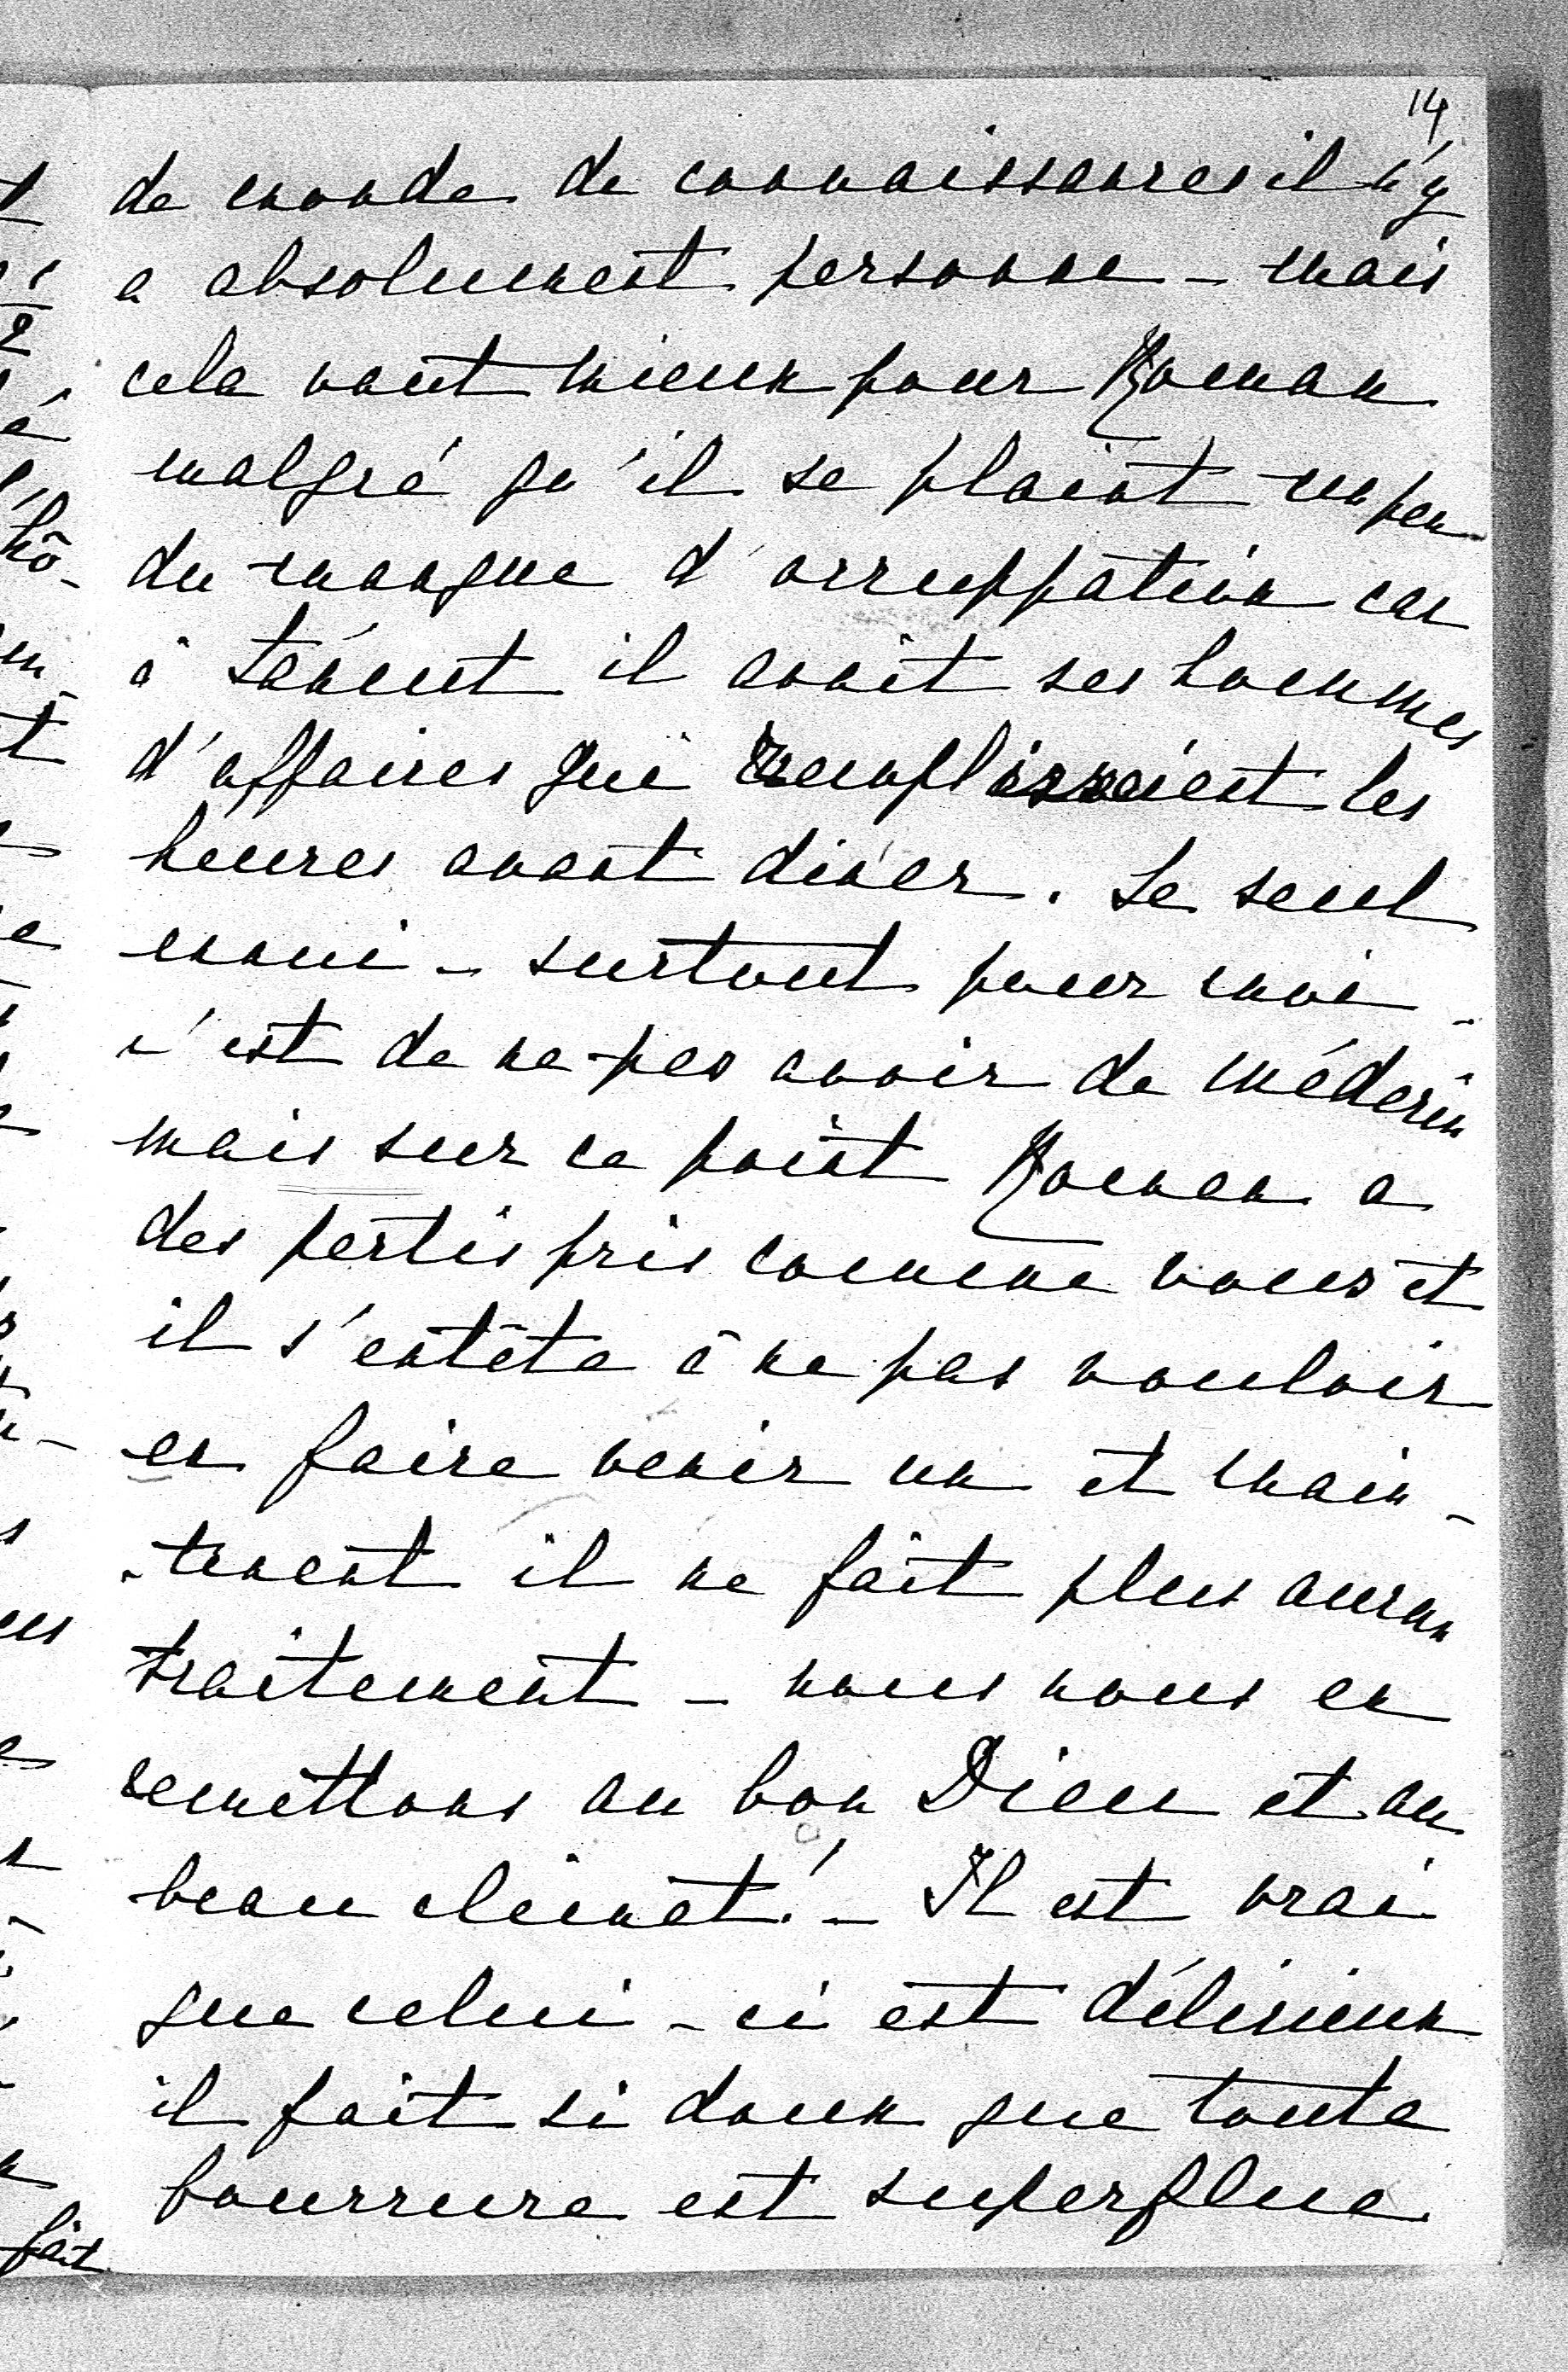 14
de monde de connaissances il n'y
a absolument personne - mais
cela vaut mieux pour Roman
malgré qu'il se plaint un peu
du manque d'occuppation car
à Łańcut il avait ses hommes
d'affaires qui remplissaient les
heures avant diner. Le seul
ennui - surtout pour moi -
c'est de ne pas avoir de médecin
mais sur ce point Roman a
des partis pris comme vous et
il s'entête à ne pas vouloir
en faire venir un et main-
-tenant il ne fait plus aucun
traitement - nous nous en
remettons au bon Dieu et au
beau climat! - Il est vrai
que celui-ci est délicieux
il fait si doux que toute
fourrure est superflue